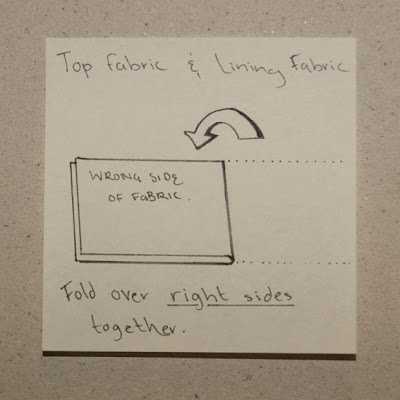 Top fabric & Lining Fabric
WRONG SIDE
OF FABRIC.
Fold over right sides
together.